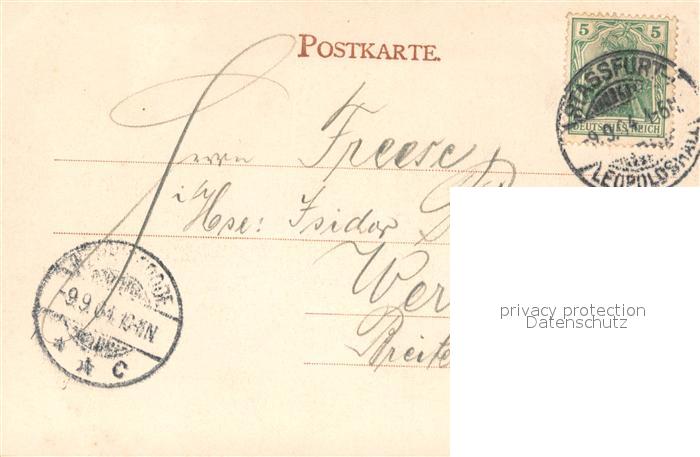 POSTKARTE.
5 5
DEUTSCHES REICH
STASSFURT-
9.9.
LEOPOLDSHALL
Herrn Freese
i/ Hse: Isidor
Wer
Breite
-9.9.04.
* * C
privacy protection
Datenschutz